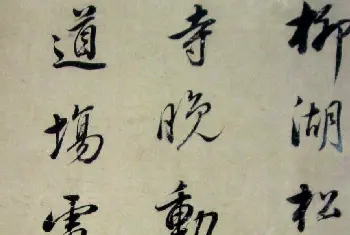 柳湖松
寺晚動
道場雲